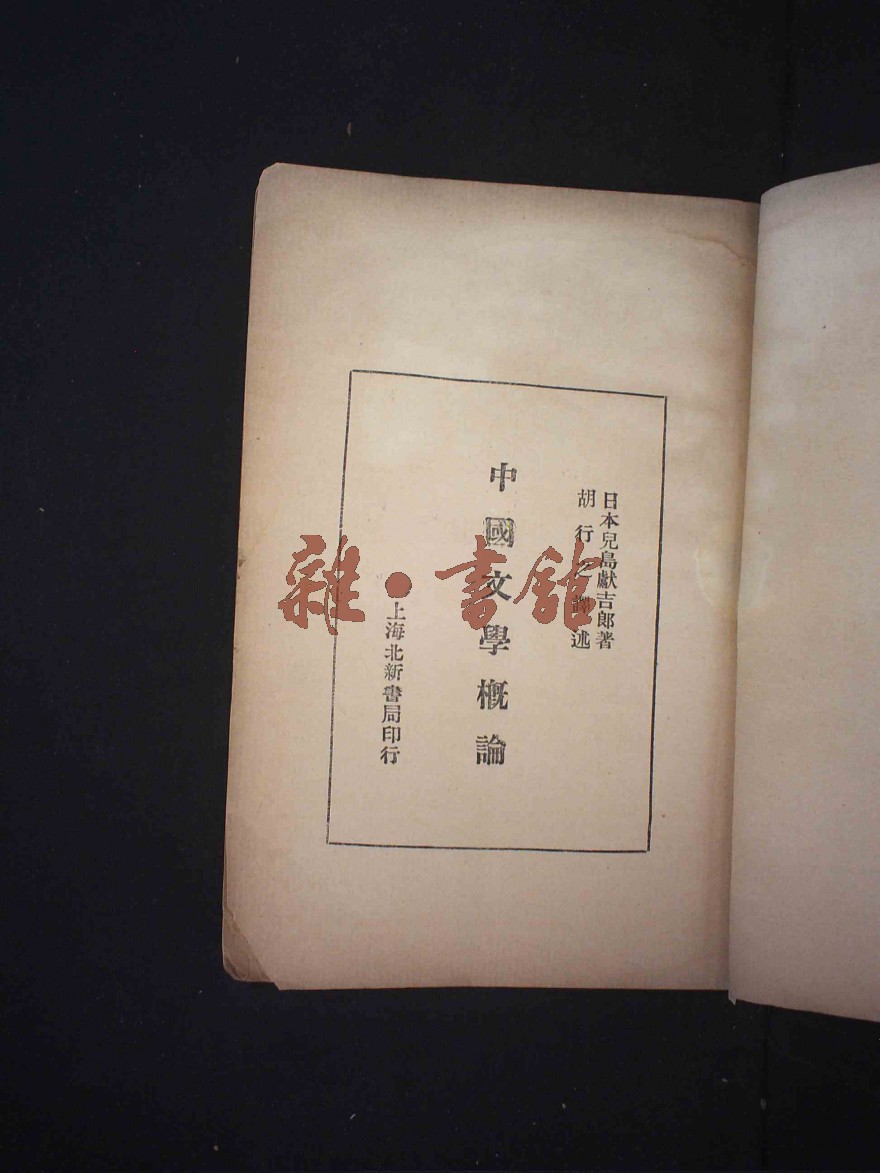 日本兒島獻吉郎著
胡行之譯述
中國文學概論
上海北新書局印行
雜·書館